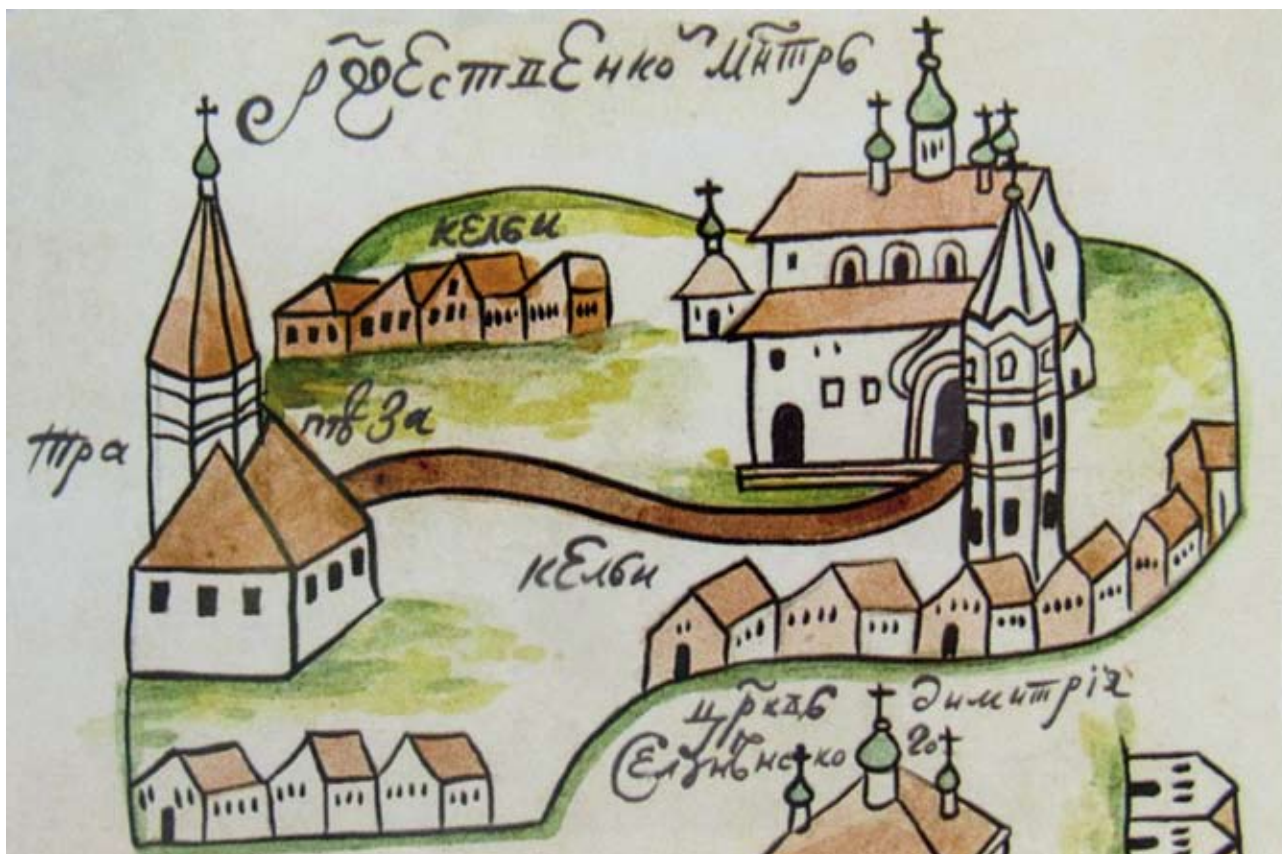 Рождественко мнтрь
кельи
тра
пѣза
кельи
црквь Димитрія
Селунънско го